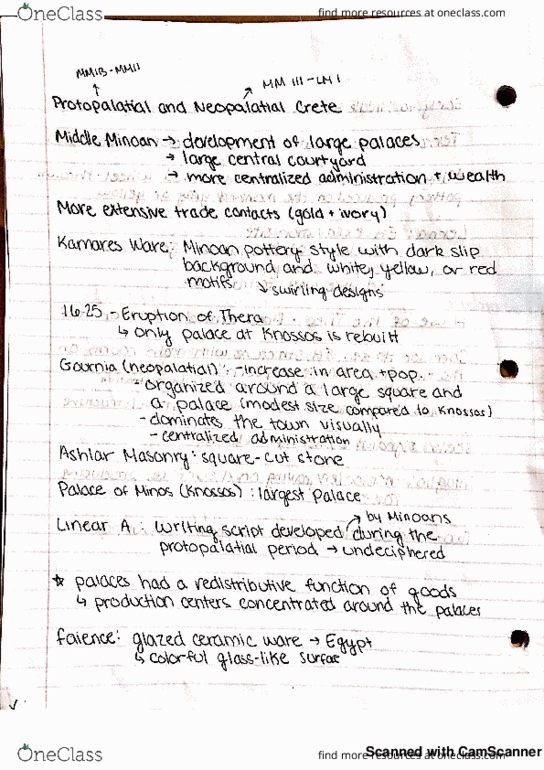 OneClass
find more resources at oneclass.com
MMIB-MMII
MM III-LM I
Protopalatial and Neopalatial Crete
Middle Minoan → development of large palaces
→ large central courtyard
→ more centralized administration + wealth
More extensive trade contacts (gold + ivory)
Kamares Ware: Minoan pottery style with dark slip
background and white, yellow, or red
motifs ↳ swirling designs
1625 - Eruption of Thera
↳ only palace at Knossos is rebuilt
Gournia (neopalatial): - increase in area + pop.
- organized around a large square and
a palace (modest size compared to Knossos)
- dominates the town visually
- centralized administration
Ashlar Masonry: square-cut stone
Palace of Minos (Knossos): largest palace
by Minoans
Linear A: writing script developed during the
protopalatial period → undeciphered
☆ palaces had a redistributive function of goods
↳ production centers concentrated around the palaces
faience: glazed ceramic ware → Egypt
↳ colorful glass-like surfae
Scanned with CamScanner
OneClass
find more resources at oneclass.com